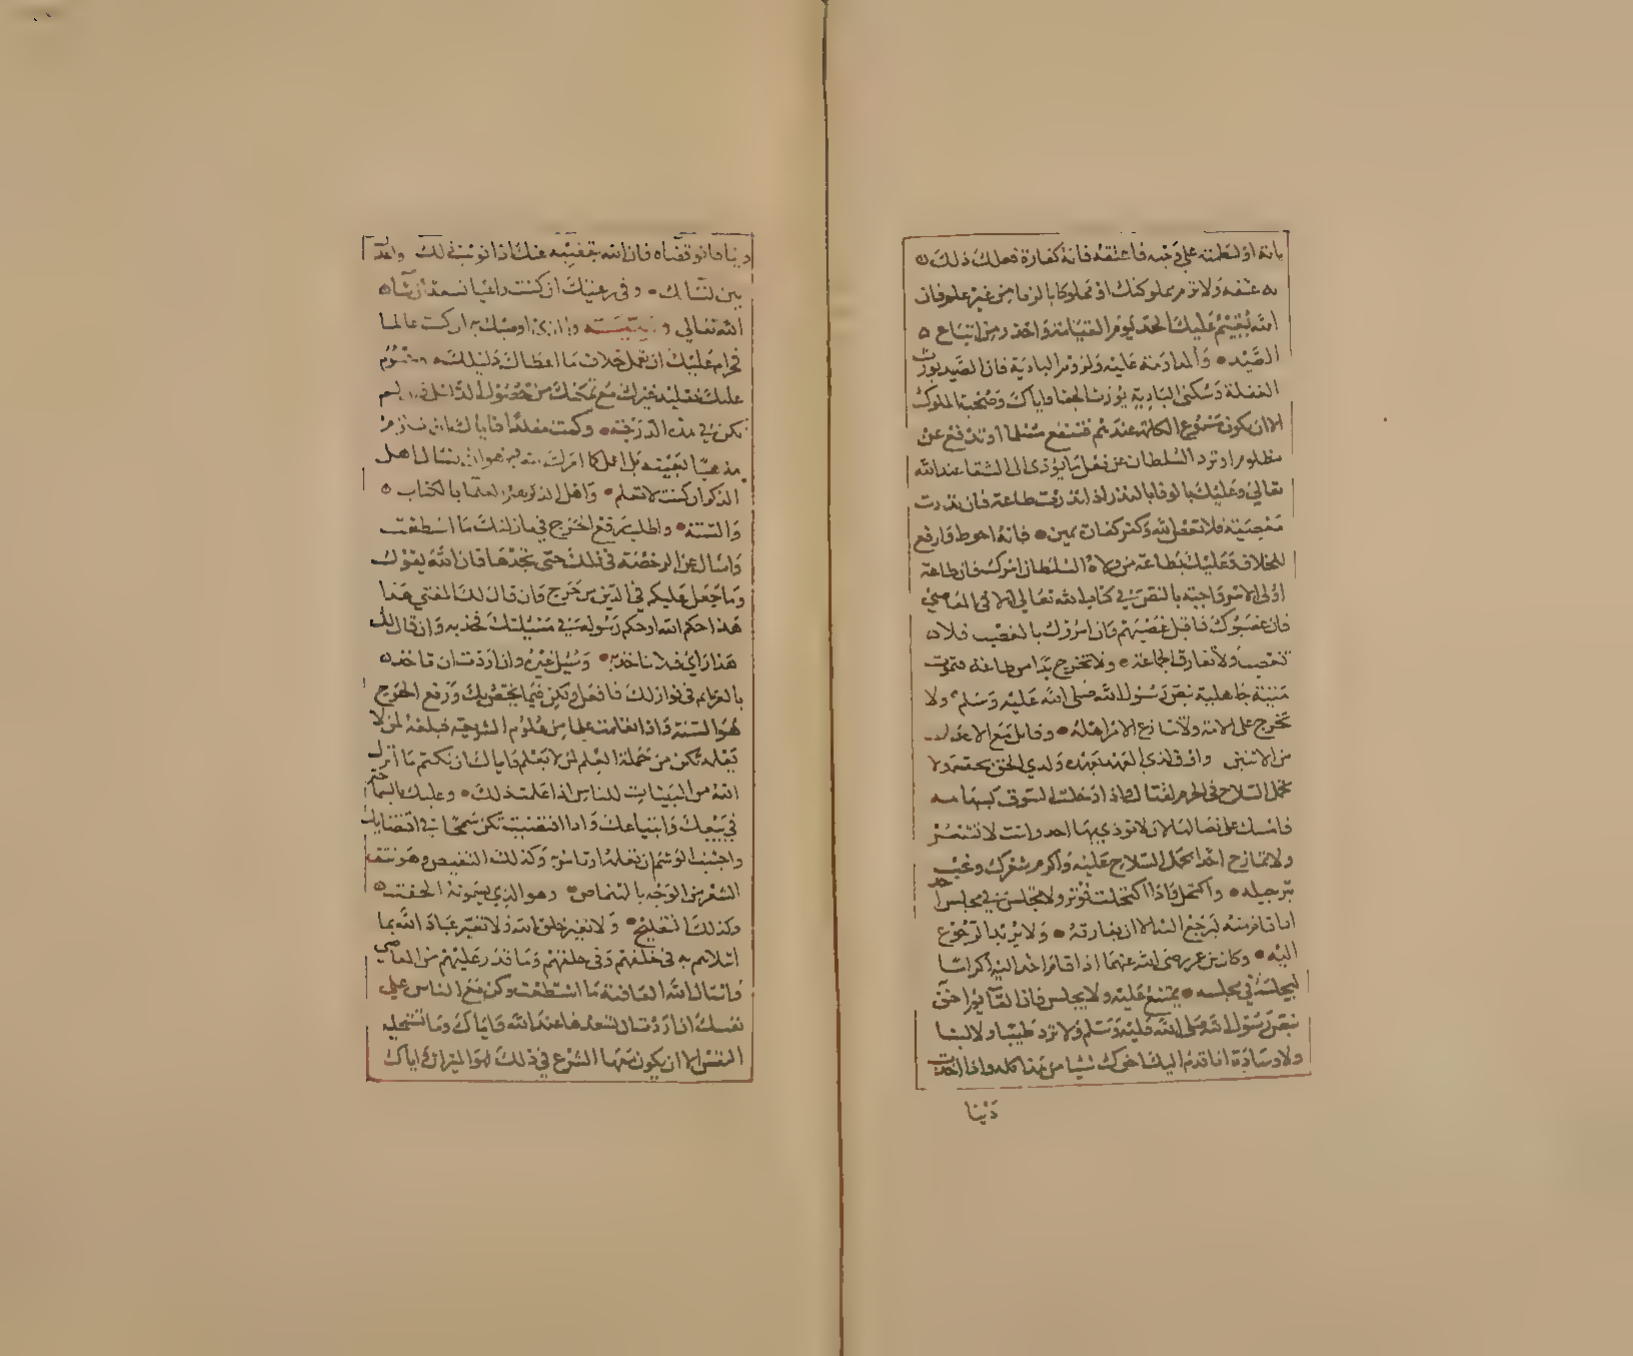 بانه او لطمته على وجهه فاعتقه فانه كفارة فعلك ذلك
به عتقه ولا ترم مملوكك او مملوكا بالزنا من غير علم فان
الله يقيم عليك الحد يوم القيامة واحذر من اتباع
الصيد والمداومة عليه ولزوم البادية فان الصيد يورث
الغفلة وسكنى البادية يورث الجفا واياك وصحبة الملوك
الا ان يكون مسموع الكلمة عندهم فتنفع مسلما او تدفع عن
مظلوم او ترد السلطان عن فعل ما يؤدي الى الشقا عند الله
تعالى وعليك بالوفا بالنذر اذا نذرت طاعة فان نذرت
معصية فلا تعص الله وكفر كفارة يمين فانه احوط وارفع
للخلاف وعليك بطاعة من ولاه السلطان امرك فان طاعة
اولى الامر واجبة بالنص في كتاب الله تعالى الا في المعاصي
فان غصبوك فاقبل غصبهم وان امروك بالغصب فلا
تغصب ولا تفارق الجماعة ولا تخرج يدا من طاعة فتموت
ميتة جاهلية بنص رسول الله صلى الله عليه وسلم ولا
تخرج على الامة ولا تنازع الامر اهله وقاتل مع الاعدل
من الاثنين واوف لذي العهد بعهده ولذي الحق بحقه ولا
تحمل السلاح في الحرم لقتال واذا دخلت السوق بسهام
فامسك على نصالها لان لا توذي بها احد وانت لا تشعر
ولا تمازح اخدا بحمل السلاح عليه واكرم شعرك وغب
ترجيله واكتحل فاذا اكتحلت فاوتر ولا تجلس في مجلس احد
اذا قام منه ليرجع اليه الا ان يفارقه ولا يريد الرجوع
اليه وكان بن عمر رضى الله عنهما اذا قام احد اليه اكراما
ليجلسه في مجلسه يمتنع عليه ولا يجلس فان القايم احق
بنص رسول الله صلى الله عليه وسلم ولا ترد طيبا ولا لبنا
ولا وسادة اذا قدم اليك اخوك شيا من هذا كله واذا اخذت
دينا
دينا فانو قضاه فان الله يقضيه عنك اذا نويت ذلك واعدل
بين نسائك وفى رعيتك ان كنت راعيا تسعد ان شا
الله تعالى والذي اوصيك به ان كنت عالما
فحرام عليك ان تعمل خلاف ما اعطاك دليلك
عليك تقليد غيرك مع تمكنك من حصول الدليل لم
تكن في هذه الدرجة وكنت مقلدا فاياك ان تلتزم
مذهبا بعينه بل اعمل كما امرك الله ان تسال اهل
الذكر ان كنت لا تعلم واهل الذكر هم العلما بالكتاب
والسنة واطلب رفع الحرج في نازلتك ما استطعت
واسال عن الرخصة في ذلك حتى تجدها فان الله يقول
وما جعل عليكم في الدين من حرج وان قال لك المفتي هذا
هذا حكم الله او حكم رسوله في مسيلتك فخذ به وان قال لك
هذا راي فلا تاخذ به وسل غيره وان اردت ان تاخذ
بالعزايم في نوازلك فافعل ولكن فيما يختص بك ورفع الحرج
هو السنة واذا تعلمت علما من علوم الشريعة فبلغه لمن لا
يعلمه تكن من حملة العلم لمن لا يعلم واياك ان تكتم ما انزل
الله من البينات للناس اذا علمت ذلك وعليك بالسماحة
في بيعك وابتياعك واذا اقتضيت تكن سمحا في اقتضايك
واجتنب الوشم ان تفعله او تامر به وكذلك التنميص وهو نتف
الشعر من الوجه بالنماص وهو الذي يسمونه الحفت
وكذلك التفليج ولا تغير خلق الله ولا تعير عباد الله بما
ابتلاهم به في خلقهم وفي خلقهم وما قدر عليهم من المعاصي
واسال الله العافية ما استطعت وكن مع الناس على
نفسك اذا اردت ان تسعدها عند الله واياك وما تستحليه
النفس الا ان يكون معها الشرع في ذلك فهو الميزان واياك